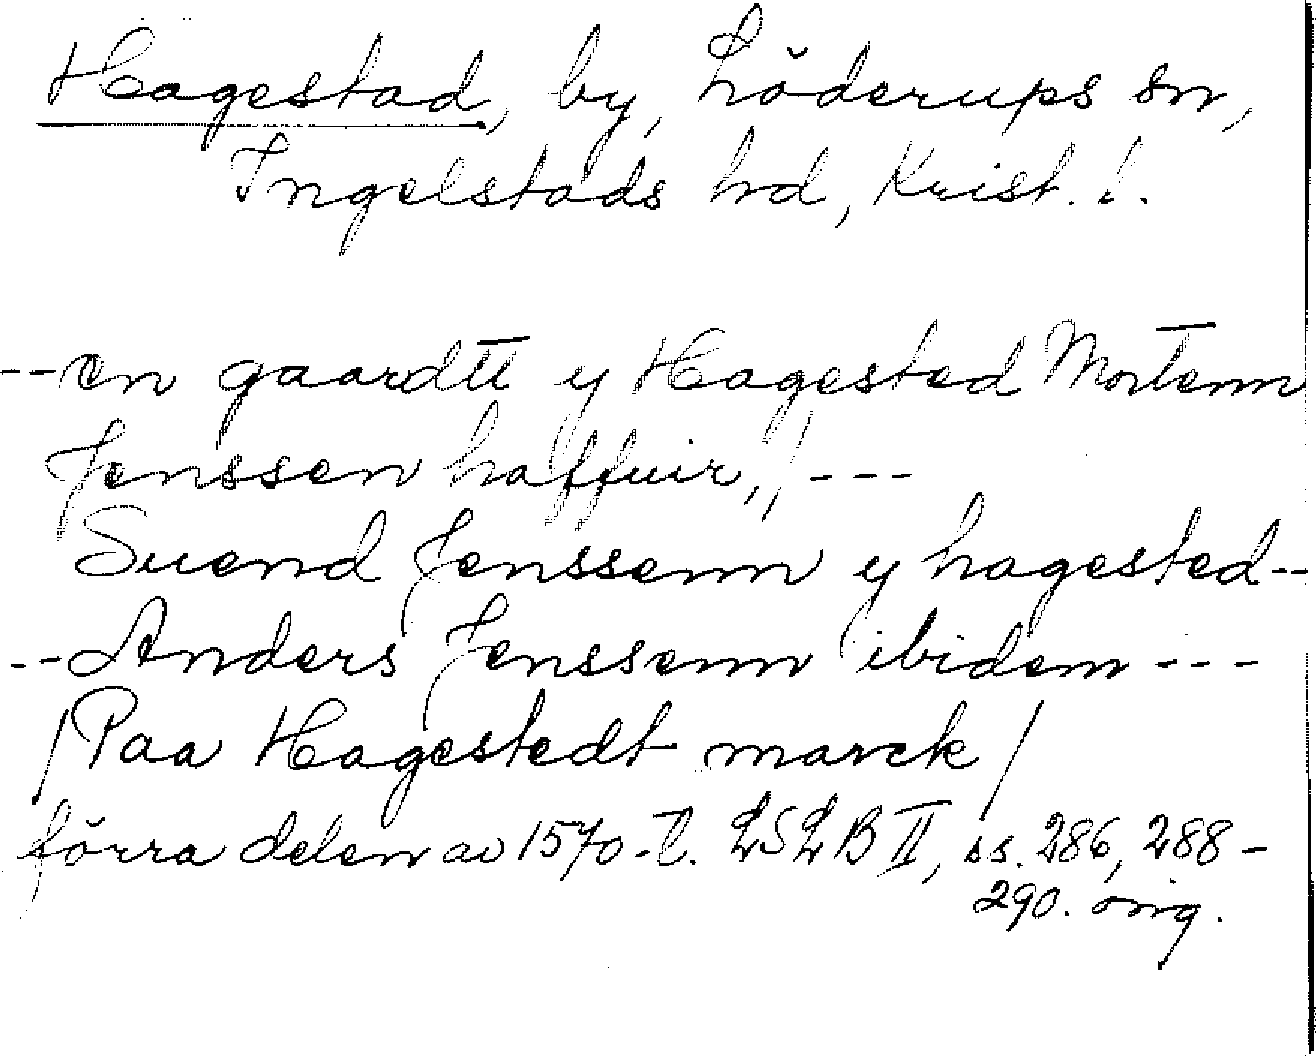 Hagestad, by, Löderups sn,
Ingelstads hrd, Krist. l.
--en gaardtt y Hagested Mortenn
Jenssen haffuir, / ---
Suend Jenssenn y hagested--
--Anders Jenssenn ibidem ---
/ Paa Hagestedt marck /
förra delen av 1570-t. LSLB II, ss. 286, 288-
290. orig.